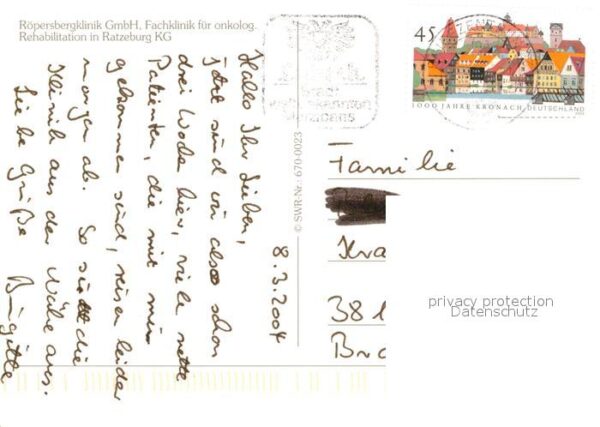 Röpersbergklinik GmbH, Fachklinik für onkolog.
Rehabilitation in Ratzeburg KG
8.3.2004
Hallo Ihr Lieben,
jetzt sind wir also schon
drei Wochen hier, viele nette
Patienten, die mit mir
gekommen sind, reisen leider
morgen ab. So sieht die
Klinik aus der Nähe aus.
Liebe Grüße Brigitte
© SWR-Nr.: 670-0023
45
1000 JAHRE KRONACH DEUTSCHLAND
Familie
Kra
38 1
Bra
privacy protection
Datenschutz